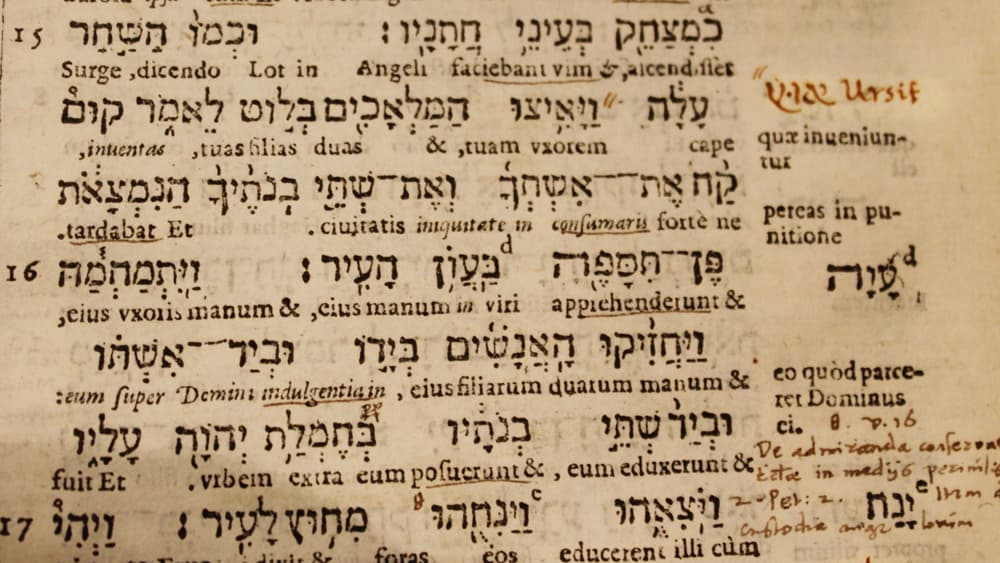 15 כִמְצַחֵק בְּעֵינֵי חֲתָנָיו׃ וּכְמוֹ הַשַּׁחַר
Surge ,dicendo Lot in Angeli faciebant vim & ,ascendisset
עָלָה וַיָּאִיצוּ הַמַּלְאָכִים בְּלוֹט לֵאמֹר קוּם
,inventas ,tuas filias duas & ,tuam vxorem cape
קַח אֶת־אִשְׁתְּךָ וְאֶת־שְׁתֵּי בְנֹתֶיךָ הַנִּמְצָאֹת
.tardabat Et .ciuitatis iniquitate in consumaris fortè ne
16 פֶּן־תִּסָּפֶה בַּעֲוֹן d הָעִיר׃ וַיִּתְמַהְמָהּ
,eius vxoris manum & ,eius manum in viri apprehenderunt &
וַיַּחֲזִיקוּ הָאֲנָשִׁים בְּיָדוֹ וּבְיַד־אִשְׁתּוֹ
:eum super Domini indulgentia in , eius filiarum duarum manum &
וּבְיַד שְׁתֵּי בְנֹתָיו בְּחֶמְלַת יְהוָֹה עָלָיו
fuit Et .vrbem extra eum posuerunt & , eum eduxerunt &
17 וַיֹּצִאֻהוּ c וַיַּנִּחֻהוּ מִחוּץ לָעִיר׃ וַיְהִי
& foras eos educerent illi cùm
Versit
quæ inueniun-
tur
pereas in pu-
nitione
d עָוָה
eo quòd parce-
ret Dominus
ei. v. 16
De admiranda
in medijs
2 Pet: 2.
e יָנַח
custodia